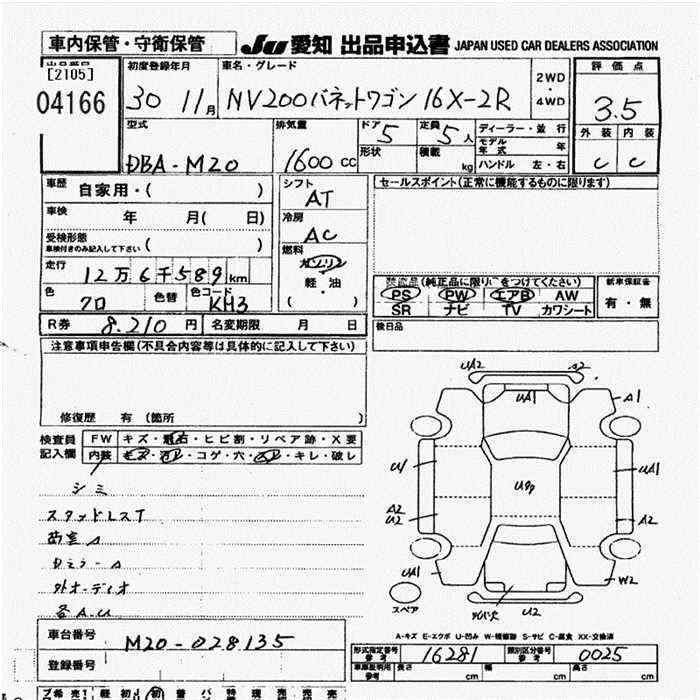 車内保管・守衛保管
JU 愛知 出品申込書 JAPAN USED CAR DEALERS ASSOCIATION
出品番号
[2105]
04166
初度登録年月
30 11月
車名・グレード
NV200バネットワゴン 16X-2R
2WD
・
4WD
評価点
3.5
外装 内装
C C
型式
DBA-M20
排気量
1600 CC
ドア 5
形状
定員 5人
積載 kg
ディーラー・並行
モデル年式 年
ハンドル 左・右
車歴 自家用・( )
車検 年 月( 日)
受検形態
車検付きのみ記入して下さい ( )
走行
12万6千589km
色 クロ 色替 色コード KH3
シフト
AT
冷房
AC
燃料
ガソリン
軽・油
( )
セールスポイント(正常に機能するものに限ります)
装備品(純正品に限り○をつけてください)
PS PW エアB AW
SR ナビ TV カワシート
新車保証書
有・無
後日品
R券 8.210円 名変期限 月 日
注意事項申告欄(不具合内容等は具体的に記入して下さい)
修復歴 有 (箇所 )
検査員
記入欄
FW キズ・飛石・ヒビ割・リペア跡・X要
内装 キズ・汚レ・コゲ・穴・スレ・キレ・破レ
シミ
スタッドレスT
外オーディオ
各A.U
UA2
A2
UA1
A1
U1
UA1
A2
U2
A2
UA1
W2
U2
スペア
A-キズ E-エクボ U-凹み W-補修跡 S-サビ C-腐食 XX-交換済
車台番号 M20-028135
登録番号
形式指定番号
参考
16281
類別区分番号
参考
0025
車庫証明用
参考
長さ 幅 高さ